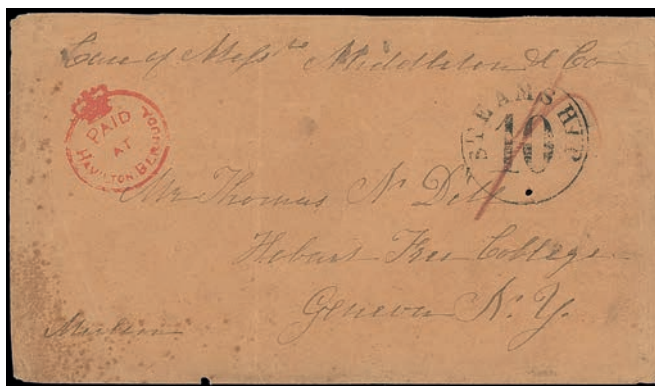 Care of Messrs Middleton & Co
PAID
AT
HAMILTON. BERMUDA
STEAMSHIP
10
Mr Thomas N.
Hobart Free College
Geneva N.Y.